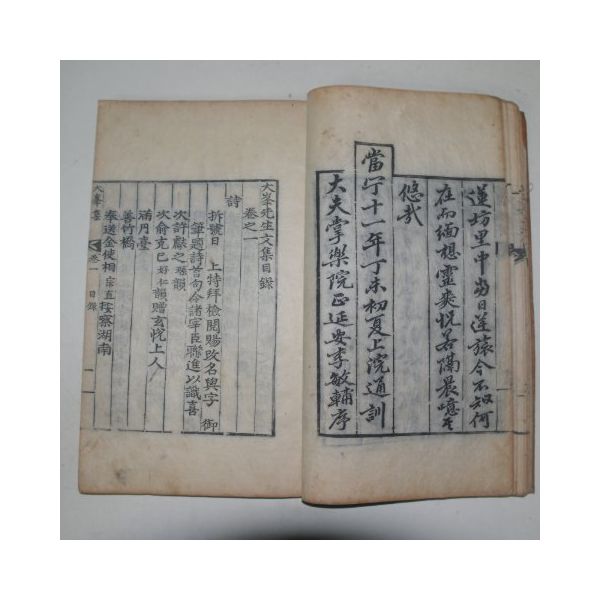 蓮坊里中當日逆旅今不知何
在而緬想靈爽怳若隔晨噫其
悠哉
當宁十一年丁未初夏上浣通訓
大夫掌樂院正延安李敏輔序
大峯先生文集目錄
卷之一
詩
拆號日 上特拜檢閱賜改名與字 御
筆題詩首句令諸宰臣聯進以識喜
次許獻之琛韻
次俞克己好仁韻贈玄悅上人
滿月臺
善竹橋
奉送金使相宗直按察湖南
大峯集 卷一 目錄 一